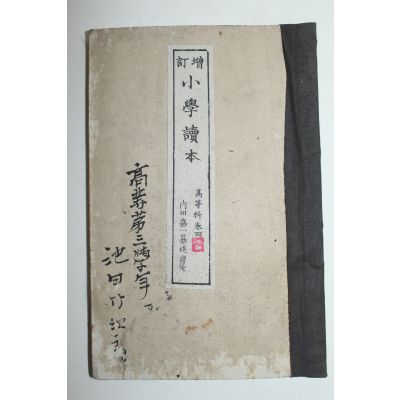 增訂
小學讀本
高等科卷四
內田嘉一
高等第三學年
池田竹